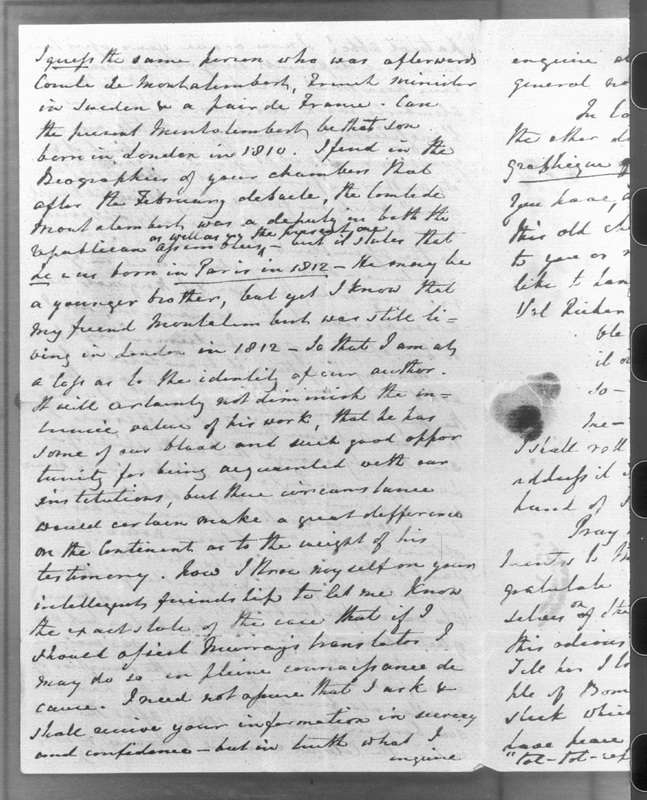 I guess the same person who was afterwards
Comte de Montalembert, French minister
in Sweden & a pair de France. Can
the present Montalembert be that son
born in London in 1810. I find in the
Biographies of your chambers that
after the February debacle, the Comte de
Montalembert was a deputy in both the
as well as in the present one
republican assemblies, - but it states that
he was born in Paris in 1812 - He may be
a younger brother, but yet I know that
my friend Montalembert was still li=
ving in London in 1812 - So that I am at
a loss as to the identity of our author.
It will certainly not diminish the in=
trinsic value of his work, that he has
some of our blood and such good oppor
tunity for being acquainted with our
institutions, but there circumstance
would certain make a great difference
on the Continent as to the weight of his
testimony. Now I throw myself on your
intelligent friendship to let me know
the exact state of the case that if I
should assist Murray's translator I
may do so in pleine connaissance de
cause. I need not assure that I ask &
shall receive your information in secrecy
and confidence - but in truth what I
enquire
enquire
general
In
the other
graphique
You have,
this old
to you or
like to
ble
it
so-
I shall
address it
hand of
Pray
gratulate
selves on of
this odious
Tell her I
ple of
which
have
"Tot-tot-